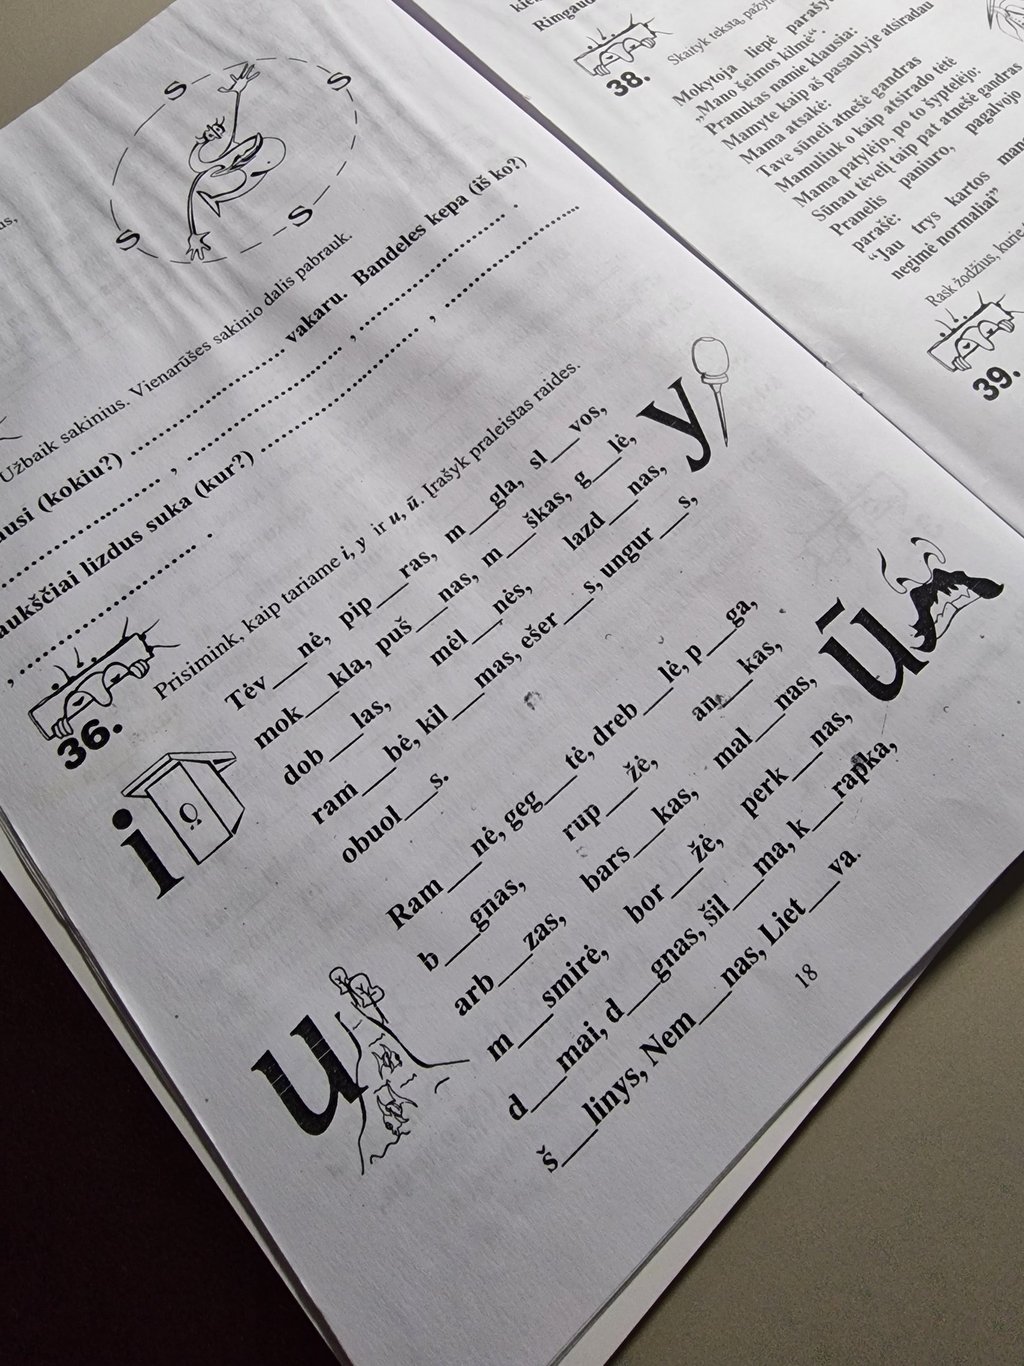 us,
S
S
S
S
Užbaik sakinius. Vienarūšes sakinio dalis pabrauk.
usi (kokiu?) .......................... vakaru. Bandeles kepa (iš ko?)
.........................., .........................., .......................... .
aukščiai lizdus suka (kur?) .........................., ..........................
, .......................... .
36.
Prisimink, kaip tariame i, y ir u, ū. Įrašyk praleistas raides.
i
y
Tėv___nė, pip___ras, m___gla, sl___vos,
mok___kla, puš___nas, m___škas, g___lė,
dob___las, mėl___nės, lazd___nas,
ram___bė, kil___mas, ešer___s, ungur___s,
obuol___s.
u
ū
Ram___nė, geg___tė, dreb___lė, p___ga,
b___gnas, rup___žė, an___kas,
arb___zas, bars___kas, mal___nas,
m___smirė, bor___žė, perk___nas,
d___mai, d___gnas, šil___ma, k___rapka,
š___linys, Nem___nas, Liet___va.
18
Rimgaud
38.
Skaityk tekstą, pažym
Mokytoja liepė parašy
„Mano šeimos kilmė“.
Pranukas namie klausia:
Mamyte kaip aš pasaulyje atsiradau
Mama atsakė:
Tave sūneli atnešė gandras
Mamuliuk o kaip atsirado tėtė
Mama patylėjo, po to šyptelėjo:
Sūnau tėvelį taip pat atnešė gandras
Pranelis paniuro, pagalvojo
parašė:
“Jau trys kartos mano
negimė normaliai”
39.
Rask žodžius, kurie